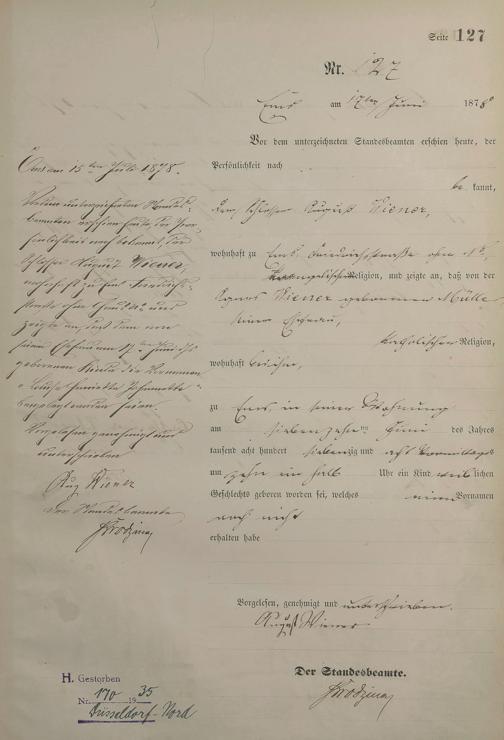 Seite 127
Nr. 127
Ems am 17ten Juni 1878
Vor dem unterzeichneten Standesbeamten erschien heute, der
Persönlichkeit nach
bekannt,
der Schlosser August Wiener,
wohnhaft zu Ems,
Religion, und zeigte an, daß von der
Agnes Wiener geborenen Müller
seiner Ehefrau,
katholischer Religion,
wohnhaft bei ihm,
zu Ems, in seiner Wohnung
am siebenzehnten Juni des Jahres
tausend acht hundert siebenzig und acht Vormittags
um zehn ein halb Uhr ein Kind weiblichen
Geschlechts geboren worden sei, welches einen Vornamen
noch nicht
erhalten habe
Vorgelesen, genehmigt und unterschrieben.
August Wiener
Der Standesbeamte.
Ems am 15ten Juli 1878.
Vor dem unterzeichneten Standes-
beamten erschien heute, der Per-
sönlichkeit nach bekannt, der
Schlosser August Wiener,
wohnhaft zu Ems
zeigte an, daß dem von
seiner Ehefrau am 17ten Juni
geborenen Kinde die Vornamen
Louise Henriette
beigelegt worden seien.
Vorgelesen genehmigt und
unterschrieben
Aug Wiener
Der Standesbeamte
H. Gestorben
Nr. 170 1935
Düsseldorf-Nord